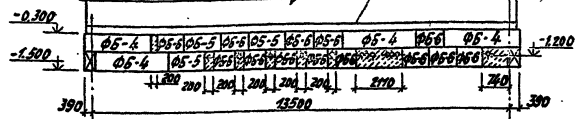 -0.300
ФБ-4 ФБ-6 ФБ-5 ФБ-6 ФБ-5 ФБ-6 ФБ-6 ФБ-4 ФБ6 ФБ-4
-1.500 ФБ-4 ФБ-5 ФБ6 ФБ6 ФБ6 ФБ6 ФБ6 ФБ6 ФБ6 ФБ6 -1.200
200 200 200 200 200 200 2110 740
390 13500 390